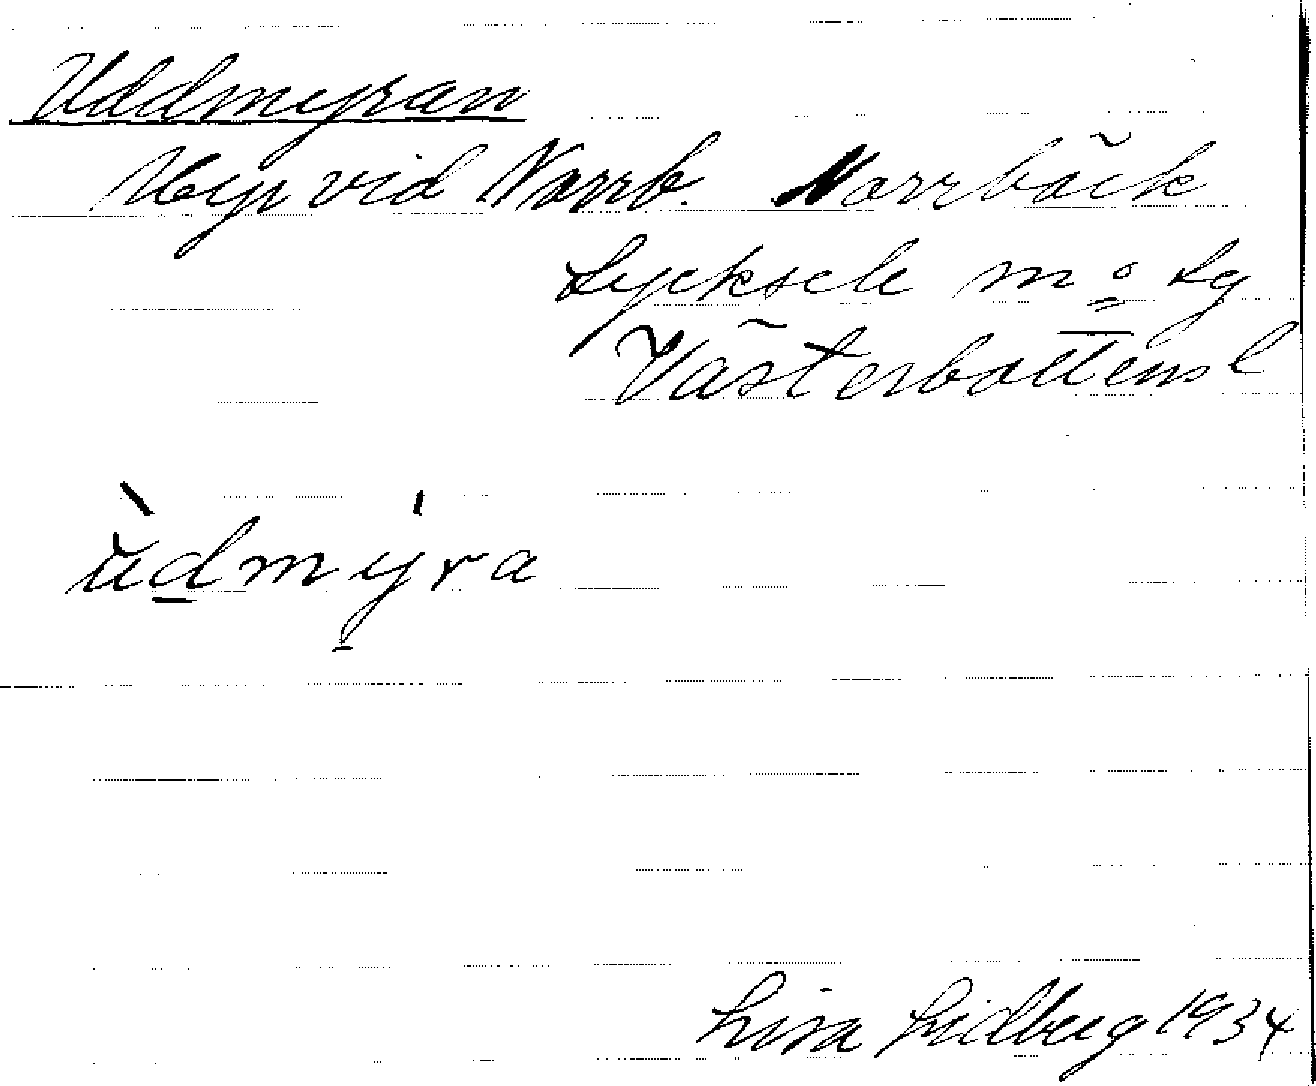 Uddmyran
Myr vid Norrb. Norrbäck
Lycksele m o Lg
Västerbottens l
ùdmýra
Lisa Lidberg 1934